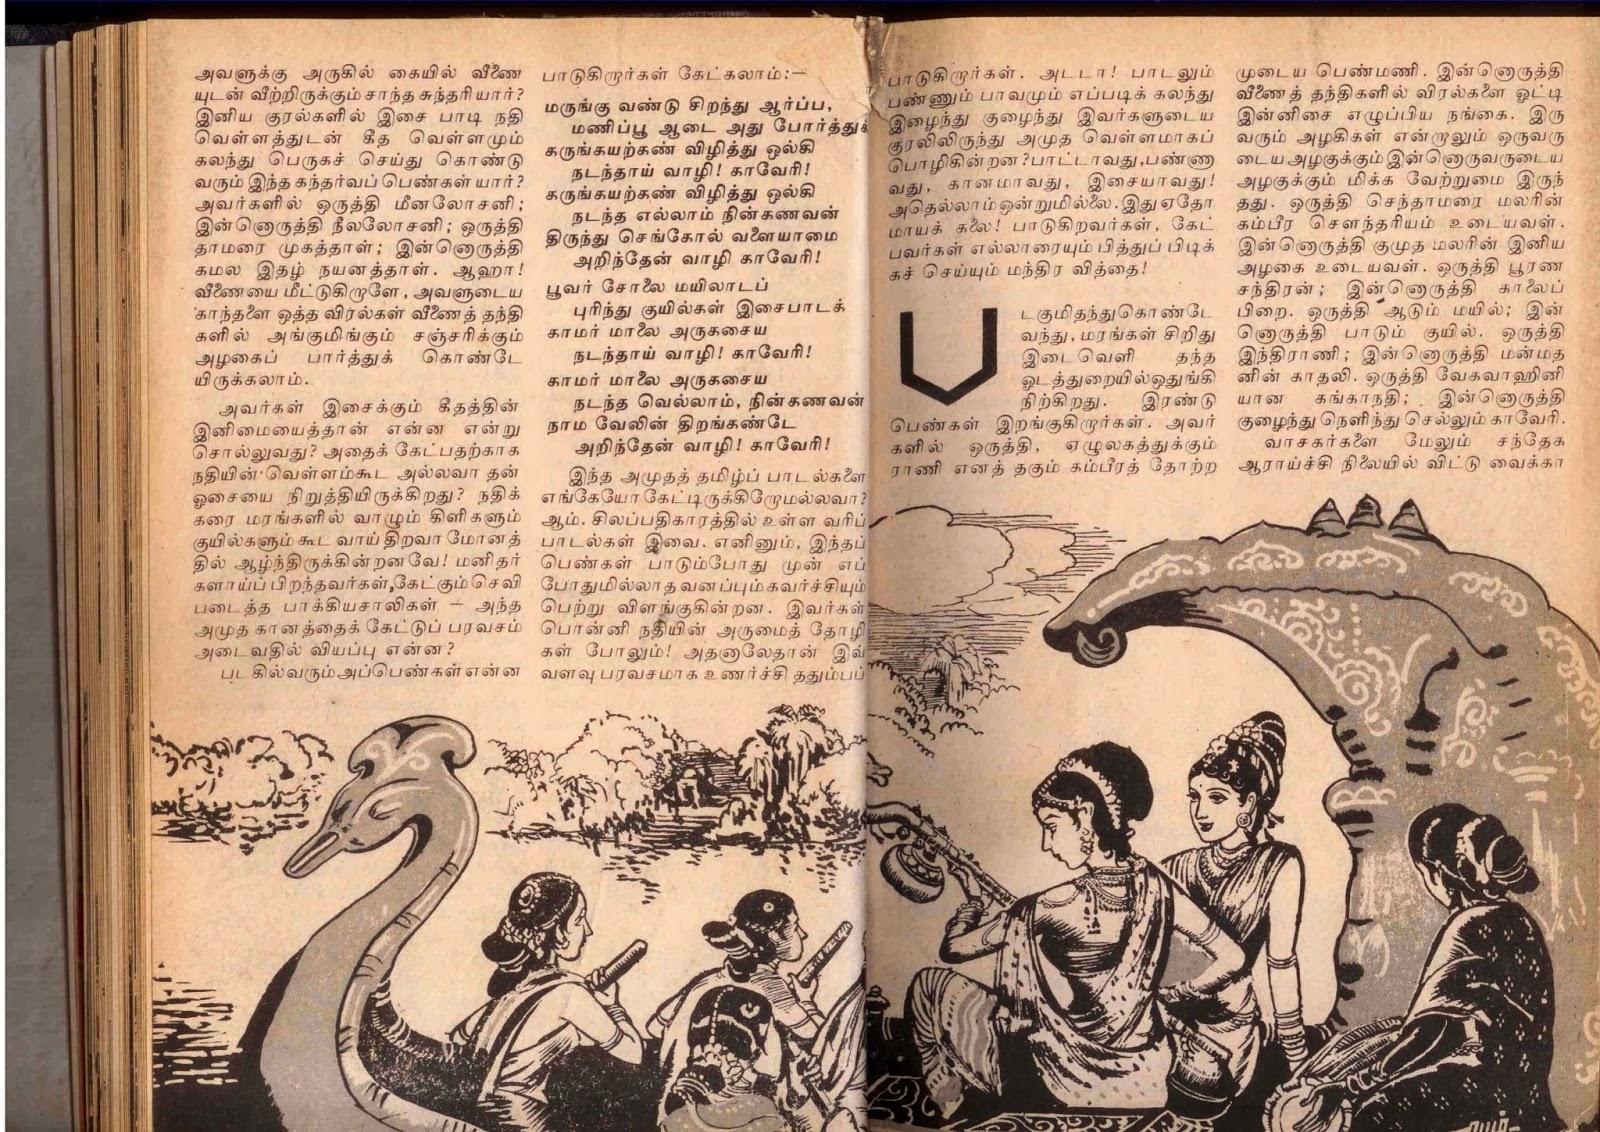 அவளுக்கு அருகில் கையில் வீணை
யுடன் வீற்றிருக்கும் சாந்த சுந்தரி யார்?
இனிய குரல்களில் இசை பாடி நதி
வெள்ளத்துடன் கீத வெள்ளமும்
கலந்து பெருகச் செய்து கொண்டு
வரும் இந்த கந்தர்வப் பெண்கள் யார்?
அவர்களில் ஒருத்தி மீனலோசனி;
இன்னொருத்தி நீலலோசனி; ஒருத்தி
தாமரை முகத்தாள்; இன்னொருத்தி
கமல இதழ் நயனத்தாள். ஆஹா!
வீணையை மீட்டுகிறாளே, அவளுடைய
காந்தளை ஒத்த விரல்கள் வீணைத் தந்தி
களில் அங்குமிங்கும் சஞ்சரிக்கும்
அழகைப் பார்த்துக் கொண்டே
யிருக்கலாம்.
அவர்கள் இசைக்கும் கீதத்தின்
இனிமையைத்தான் என்ன என்று
சொல்லுவது? அதைக் கேட்பதற்காக
நதியின் வெள்ளம்கூட அல்லவா தன்
ஓசையை நிறுத்தியிருக்கிறது? நதிக்
கரை மரங்களில் வாழும் கிளிகளும்
குயில்களும் கூட வாய் திறவா மோனத்
தில் ஆழ்ந்திருக்கின்றனவே! மனிதர்
களாய்ப் பிறந்தவர்கள், கேட்கும் செவி
படைத்த பாக்கியசாலிகள் – அந்த
அமுத கானத்தைக் கேட்டுப் பரவசம்
அடைவதில் வியப்பு என்ன?
படகில் வரும் அப்பெண்கள் என்ன
பாடுகிறார்கள் கேட்கலாம்:–
மருங்கு வண்டு சிறந்து ஆர்ப்ப,
மணிப்பூ ஆடை அது போர்த்துக்
கருங்கயற்கண் விழித்து ஒல்கி
நடந்தாய் வாழி! காவேரி!
கருங்கயற்கண் விழித்து ஒல்கி
நடந்த எல்லாம் நின்கணவன்
திருந்து செங்கோல் வளையாமை
அறிந்தேன் வாழி காவேரி!
பூவர் சோலை மயிலாடப்
புரிந்து குயில்கள் இசைபாடக்
காமர் மாலை அருகசைய
நடந்தாய் வாழி! காவேரி!
காமர் மாலை அருகசைய
நடந்த வெல்லாம், நின்கணவன்
நாம வேலின் திறங்கண்டே
அறிந்தேன் வாழி! காவேரி!
இந்த அமுதத் தமிழ்ப் பாடல்களை
எங்கேயோ கேட்டிருக்கிறோமல்லவா?
ஆம். சிலப்பதிகாரத்தில் உள்ள வரிப்
பாடல்கள் இவை. எனினும், இந்தப்
பெண்கள் பாடும்போது முன் எப்
போதுமில்லாத வனப்பும் கவர்ச்சியும்
பெற்று விளங்குகின்றன. இவர்கள்
பொன்னி நதியின் அருமைத் தோழி
கள் போலும்! அதனாலேதான் இவ்
வளவு பரவசமாக உணர்ச்சி ததும்பப்
பாடுகிறார்கள். அடடா! பாடலும்
பண்ணும் பாவமும் எப்படிக் கலந்து
இழைந்து குழைந்து இவர்களுடைய
குரலிலிருந்து அமுத வெள்ளமாகப்
பொழிகின்றன? பாட்டாவது, பண்ணா
வது, கானமாவது, இசையாவது!
அதெல்லாம் ஒன்றுமில்லை. இது ஏதோ
மாயக் கலை! பாடுகிறவர்கள், கேட்
பவர்கள் எல்லாரையும் பித்துப் பிடிக்
கச் செய்யும் மந்திர வித்தை!
படகு மிதந்து கொண்டே
வந்து, மரங்கள் சிறிது
இடைவெளி தந்த
ஓடத்துறையில் ஒதுங்கி
நிற்கிறது. இரண்டு
பெண்கள் இறங்குகிறார்கள். அவர்
களில் ஒருத்தி, ஏழுலகத்துக்கும்
ராணி எனத் தகும் கம்பீரத் தோற்ற
முடைய பெண்மணி. இன்னொருத்தி
வீணைத் தந்திகளில் விரல்களை ஓட்டி
இன்னிசை எழுப்பிய நங்கை. இரு
வரும் அழகிகள் என்றாலும் ஒருவரு
டைய அழகுக்கும் இன்னொருவருடைய
அழகுக்கும் மிக்க வேற்றுமை இருந்
தது. ஒருத்தி செந்தாமரை மலரின்
கம்பீர சௌந்தரியம் உடையவள்.
இன்னொருத்தி குமுத மலரின் இனிய
அழகை உடையவள். ஒருத்தி பூரண
சந்திரன்; இன்னொருத்தி காலைப்
பிறை. ஒருத்தி ஆடும் மயில்; இன்
னொருத்தி பாடும் குயில். ஒருத்தி
இந்திராணி; இன்னொருத்தி மன்மத
னின் காதலி. ஒருத்தி வேகவாஹினி
யான கங்காநதி; இன்னொருத்தி
குழைந்து நெளிந்து செல்லும் காவேரி.
வாசகர்களை மேலும் சந்தேக
ஆராய்ச்சி நிலையில் விட்டு வைக்கா